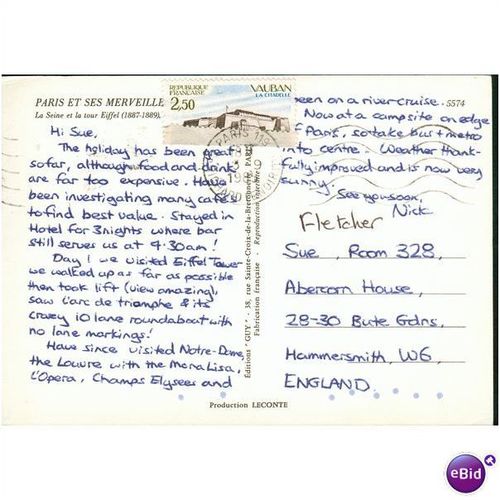 PARIS ET SES MERVEILLE
La Seine et la tour Eiffel (1887-1889).
REPUBLIQUE FRANÇAISE
2,50
VAUBAN
LA CITADELLE
PARIS
5574
Hi Sue,
The holiday has been great
so far, although food and drink
are far too expensive. Have
been investigating many cafés
to find best value. Stayed in
Hotel for 3 nights where bar
still serves us at 4:30am!
Day 1 we visited Eiffel Tower
we walked up as far as possible
then took lift (view amazing),
saw L'arc de triomphe & its
crazy 10 lane roundabout with
no lane markings!
Have since visited Notre-Dame,
the Louvre with the Mona Lisa,
L'Opera, Champs Elysees and
been on a river cruise.
Now at a campsite on edge
of Paris, so take bus + metro
into centre. Weather thank-
fully improved and is now very
sunny.
See you soon,
Nick
Editions "GUY" - 38, rue Sainte-Croix-de-la-Bretonnerie PARIS
Fabrication française - Reproduction interdite
Fletcher
Sue, Room 328,
Abercorn House,
28-30 Bute Gdns,
Hammersmith, W6,
ENGLAND.
Production LECONTE
eBid